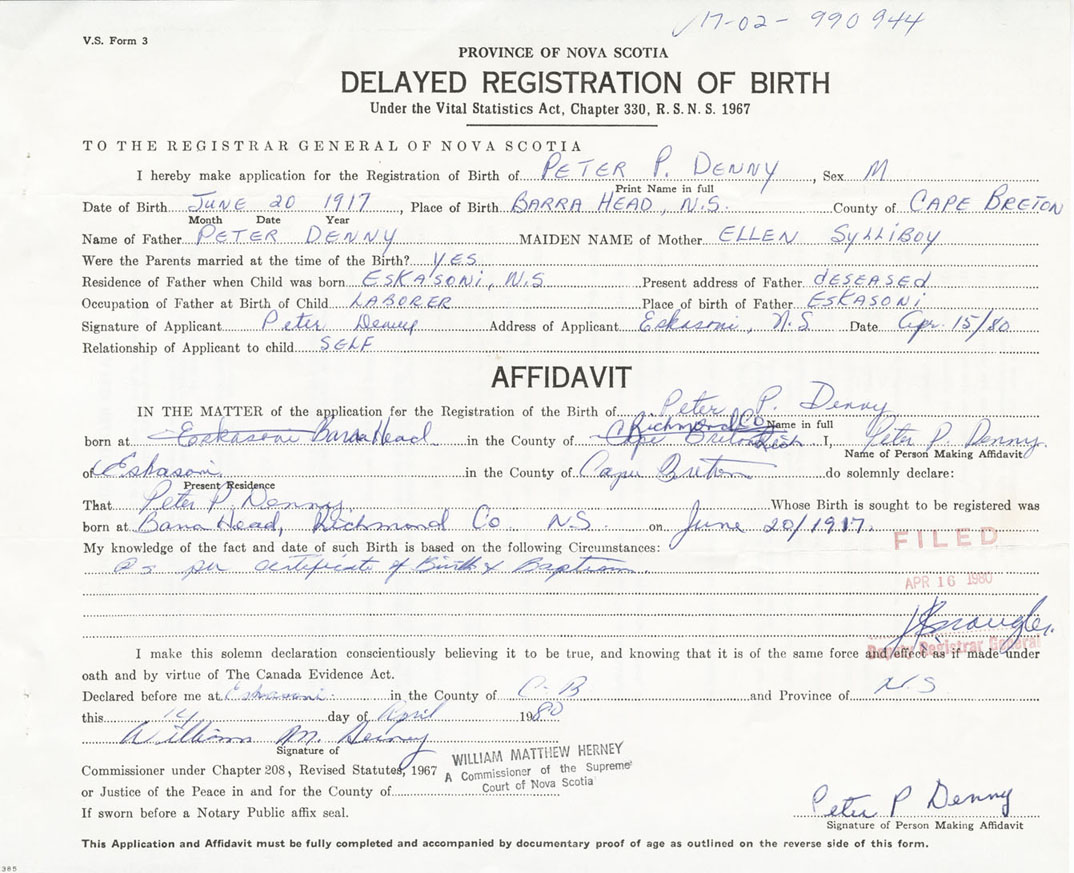 17-02-990944
V.S. Form 3
PROVINCE OF NOVA SCOTIA
DELAYED REGISTRATION OF BIRTH
Under the Vital Statistics Act, Chapter 330, R.S.N.S. 1967
TO THE REGISTRAR GENERAL OF NOVA SCOTIA
I hereby make application for the Registration of Birth of PETER P. DENNY, Sex M
Print Name in full
Date of Birth JUNE 20 1917, Place of Birth BARRA HEAD, N.S. County of CAPE BRETON
Month Date Year
Name of Father PETER DENNY MAIDEN NAME of Mother ELLEN SYLLIBOY
Were the Parents married at the time of the Birth? YES
Residence of Father when Child was born ESKASONI, N.S Present address of Father DESEASED
Occupation of Father at Birth of Child LABORER Place of birth of Father ESKASONI
Signature of Applicant Peter Denny Address of Applicant Eskasoni, N.S. Date Apr. 15/80
Relationship of Applicant to child SELF
AFFIDAVIT
IN THE MATTER of the application for the Registration of the Birth of Peter P. Denny
Richmond Co Name in full
born at Eskasoni Barra Head in the County of Cape Breton I, Peter P. Denny.
Name of Person Making Affidavit
of Eskasoni in the County of Cape Breton do solemnly declare:
Present Residence
That Peter P. Denny Whose Birth is sought to be registered was
born at Barra Head, Richmond Co N.S. on June 20/1917.
My knowledge of the fact and date of such Birth is based on the following Circumstances:
FILED
As per certificate of Birth & Baptism.
APR 16 1980
Deputy Registrar General
I make this solemn declaration conscientiously believing it to be true, and knowing that it is of the same force and effect as if made under
oath and by virtue of The Canada Evidence Act.
Declared before me at Eskasoni in the County of C-B and Province of N-S
this day of April 1980
William M. Herney
Signature of
WILLIAM MATTHEW HERNEY
Commissioner under Chapter 208, Revised Statutes, 1967
A Commissioner of the Supreme
Court of Nova Scotia
or Justice of the Peace in and for the County of
If sworn before a Notary Public affix seal.
Peter P Denny
Signature of Person Making Affidavit
This Application and Affidavit must be fully completed and accompanied by documentary proof of age as outlined on the reverse side of this form.
365